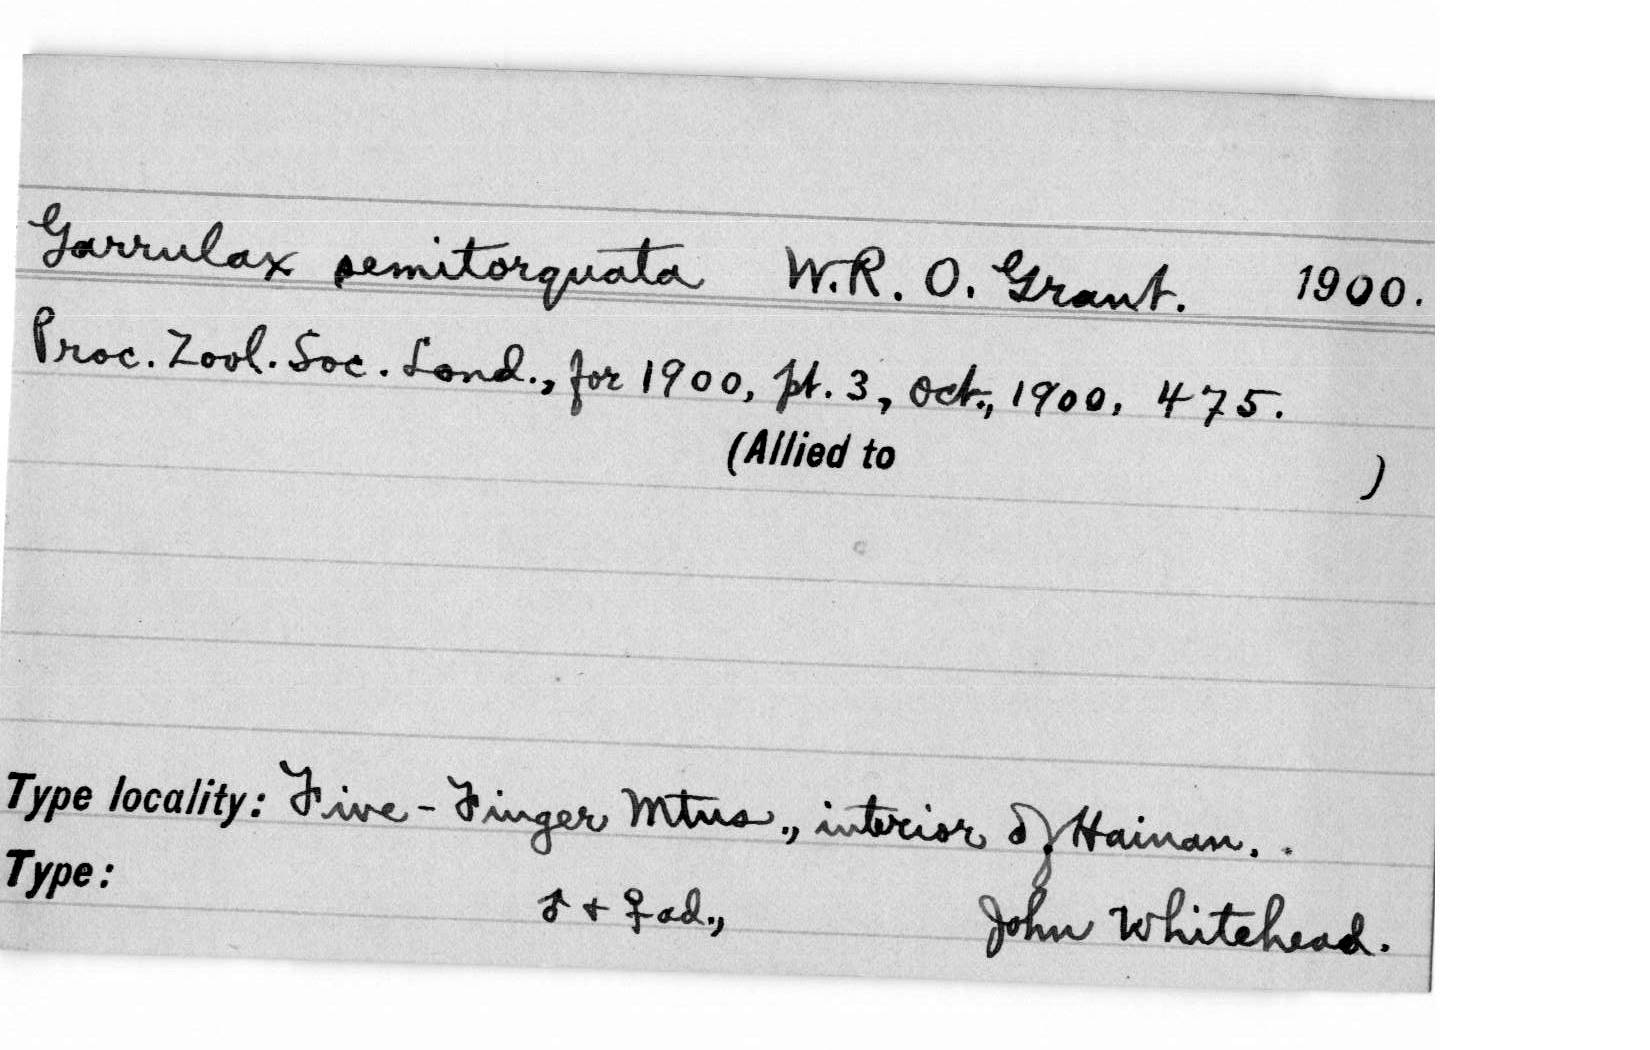 Garrulax semitorquata W.R. O. Grant. 1900.
Proc. Zool. Soc. Lond., for 1900, pt. 3, Oct., 1900, 475.
(Allied to )
Type locality: Five-Finger Mtns., interior of Hainan.
Type: ♂ + ♀ ad., John Whitehead.